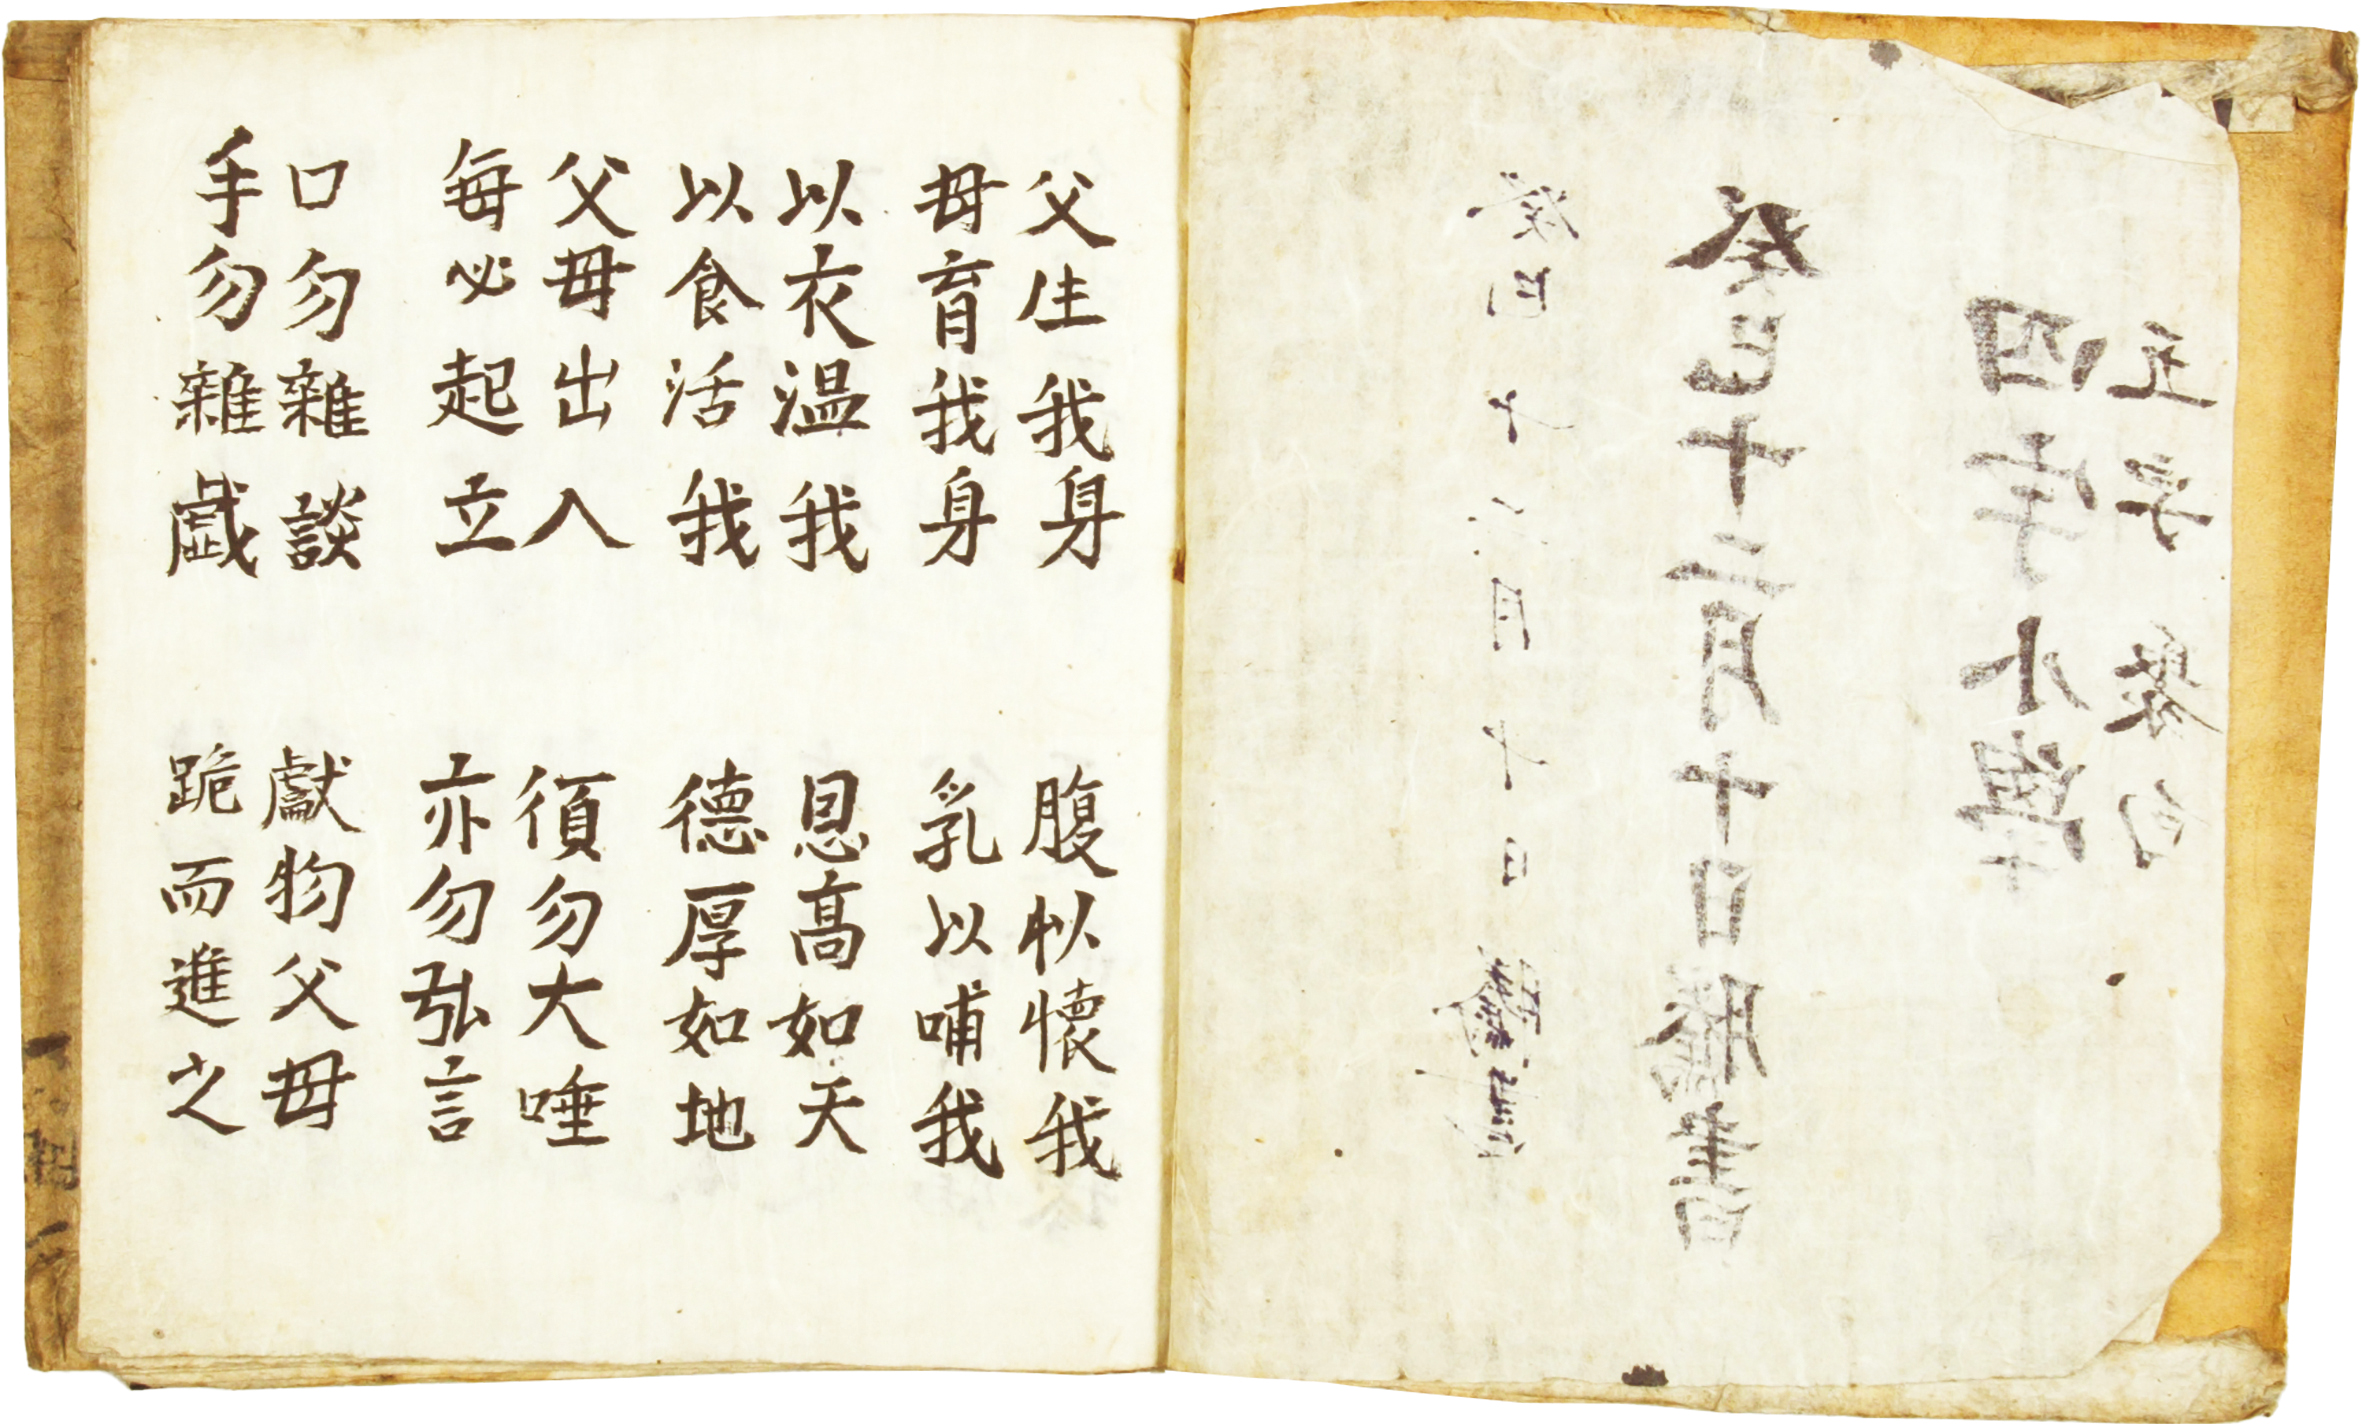 五字聚句
四字小學
癸巳十二月十日謄書
癸巳十二月十日謄書
父生我身
母育我身
腹以懷我
乳以哺我
以衣温我
以食活我
恩髙如天
德厚如地
父母出入
每必起立
須勿大唾
亦勿弘言
口勿雜談
手勿雜戱
獻物父母
跪而進之